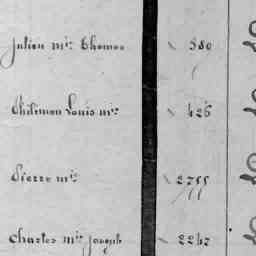 Julien mis Thomas 580
Philemon Louis mis 426
Pierre mis 2755
Charles mis Joseph 2242